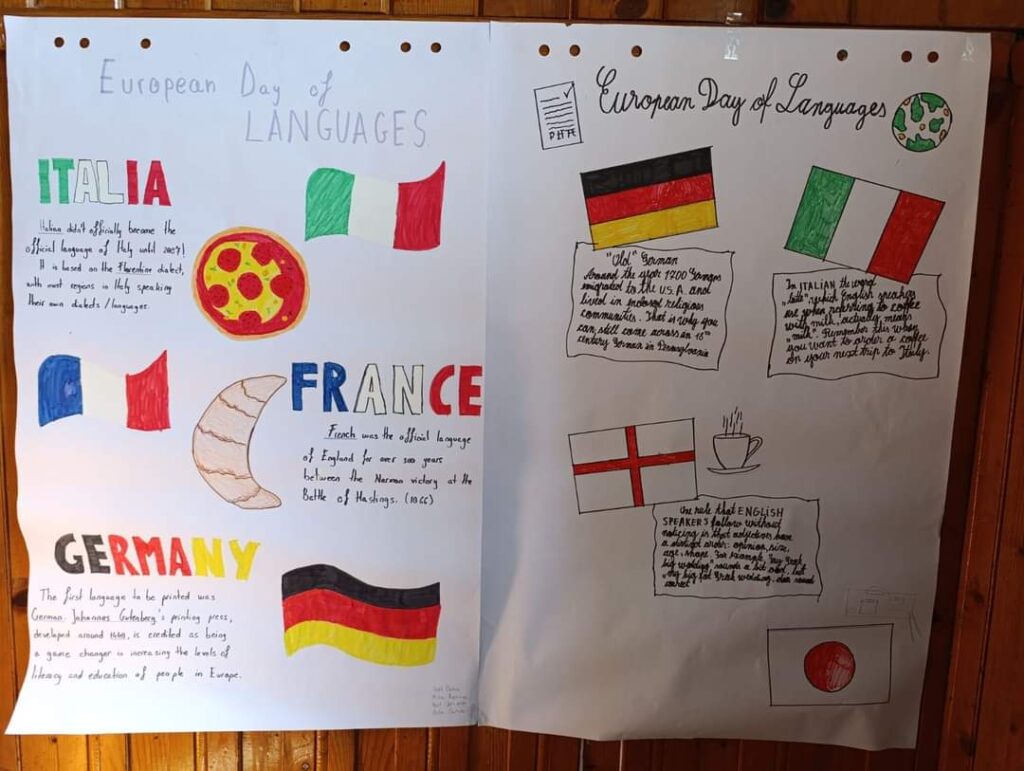 European Day of
LANGUAGES
ITALIA
Italian didn't officially became the
official language of Italy until 2007!
It is based on the Florentine dialect,
with most regions in Italy speaking
their own dialects / languages.
FRANCE
French was the official language
of England for over 300 years
between the Norman victory at the
Battle of Hastings. (1066)
GERMANY
The first language to be printed was
German. Johannes Gutenberg's printing press,
developed around is credited as being
a game changer in increasing the levels of
literacy and education of people in Europe.
European Day of Languages
"Old" German
Around the year 1700 Germans
emigrated to the U.S.A. and
lived in enclosed religious
communities. That is why you
can still come across an 18th
century German in Pennsylvania
In ITALIAN the word
"latte", which English speakers
use when referring to coffee
with milk, actually means
"milk". Remember this when
you want to order a coffee
on your next trip to Italy.
One rule that ENGLISH
SPEAKERS follow without
noticing is that adjectives have
a strict order: opinion, size,
age, shape. For example, "my Greek
big wedding" sounds a bit odd, but
"My big fat Greek wedding" does sound
correct